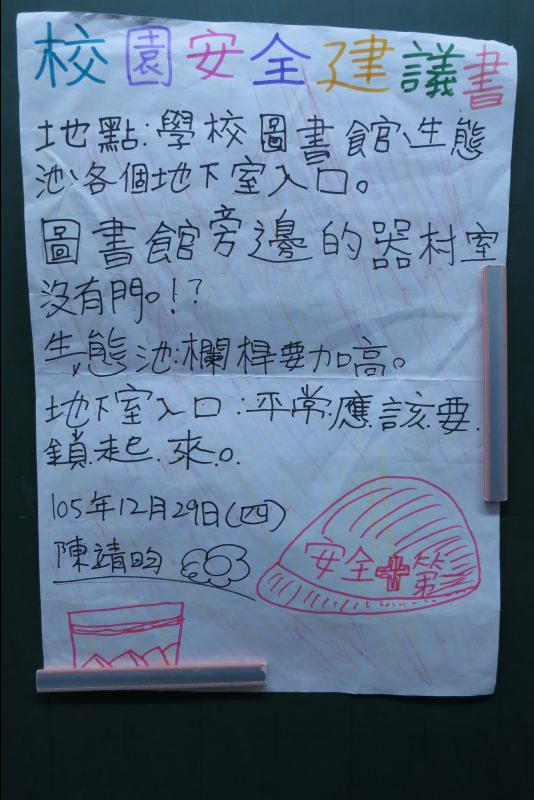 校園安全建議書
地點:學校圖書館、生態
池、各個地下室入口。
圖書館旁邊的器材室
沒有門。!?
生態池:欄桿要加高。
地下室入口:平常應該要
鎖起來。
105年12月29日(四)
陳靖昀
安全✚第一